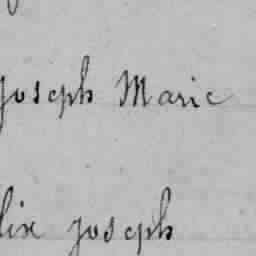 joseph Marie
lix joseph